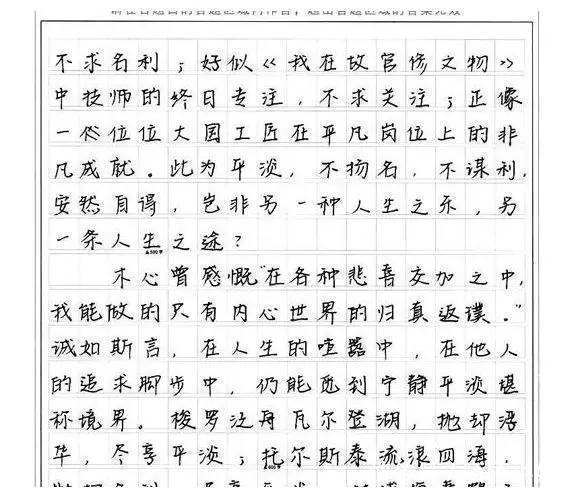 请在各题目的答题区域内作答，超出答题区域的答案无效
不求名利；好似《我在故宫修文物》
中技师的终日专注，不求关注；正像
一位位大国工匠在平凡岗位上的非
凡成就。此为平淡，不扬名，不谋利，
安然自得，岂非另一种人生之乐，另
一条人生之途？
▲600字
木心曾感慨“在各种悲喜交加之中，
我能做的只有内心世界的归真返璞。”
诚如斯言，在人生的喧嚣中，在他人
的追求脚步中，仍能觅到宁静平淡堪
称境界。梭罗泛舟瓦尔登湖，抛却浮
华，尽享平淡；托尔斯泰流浪四海，